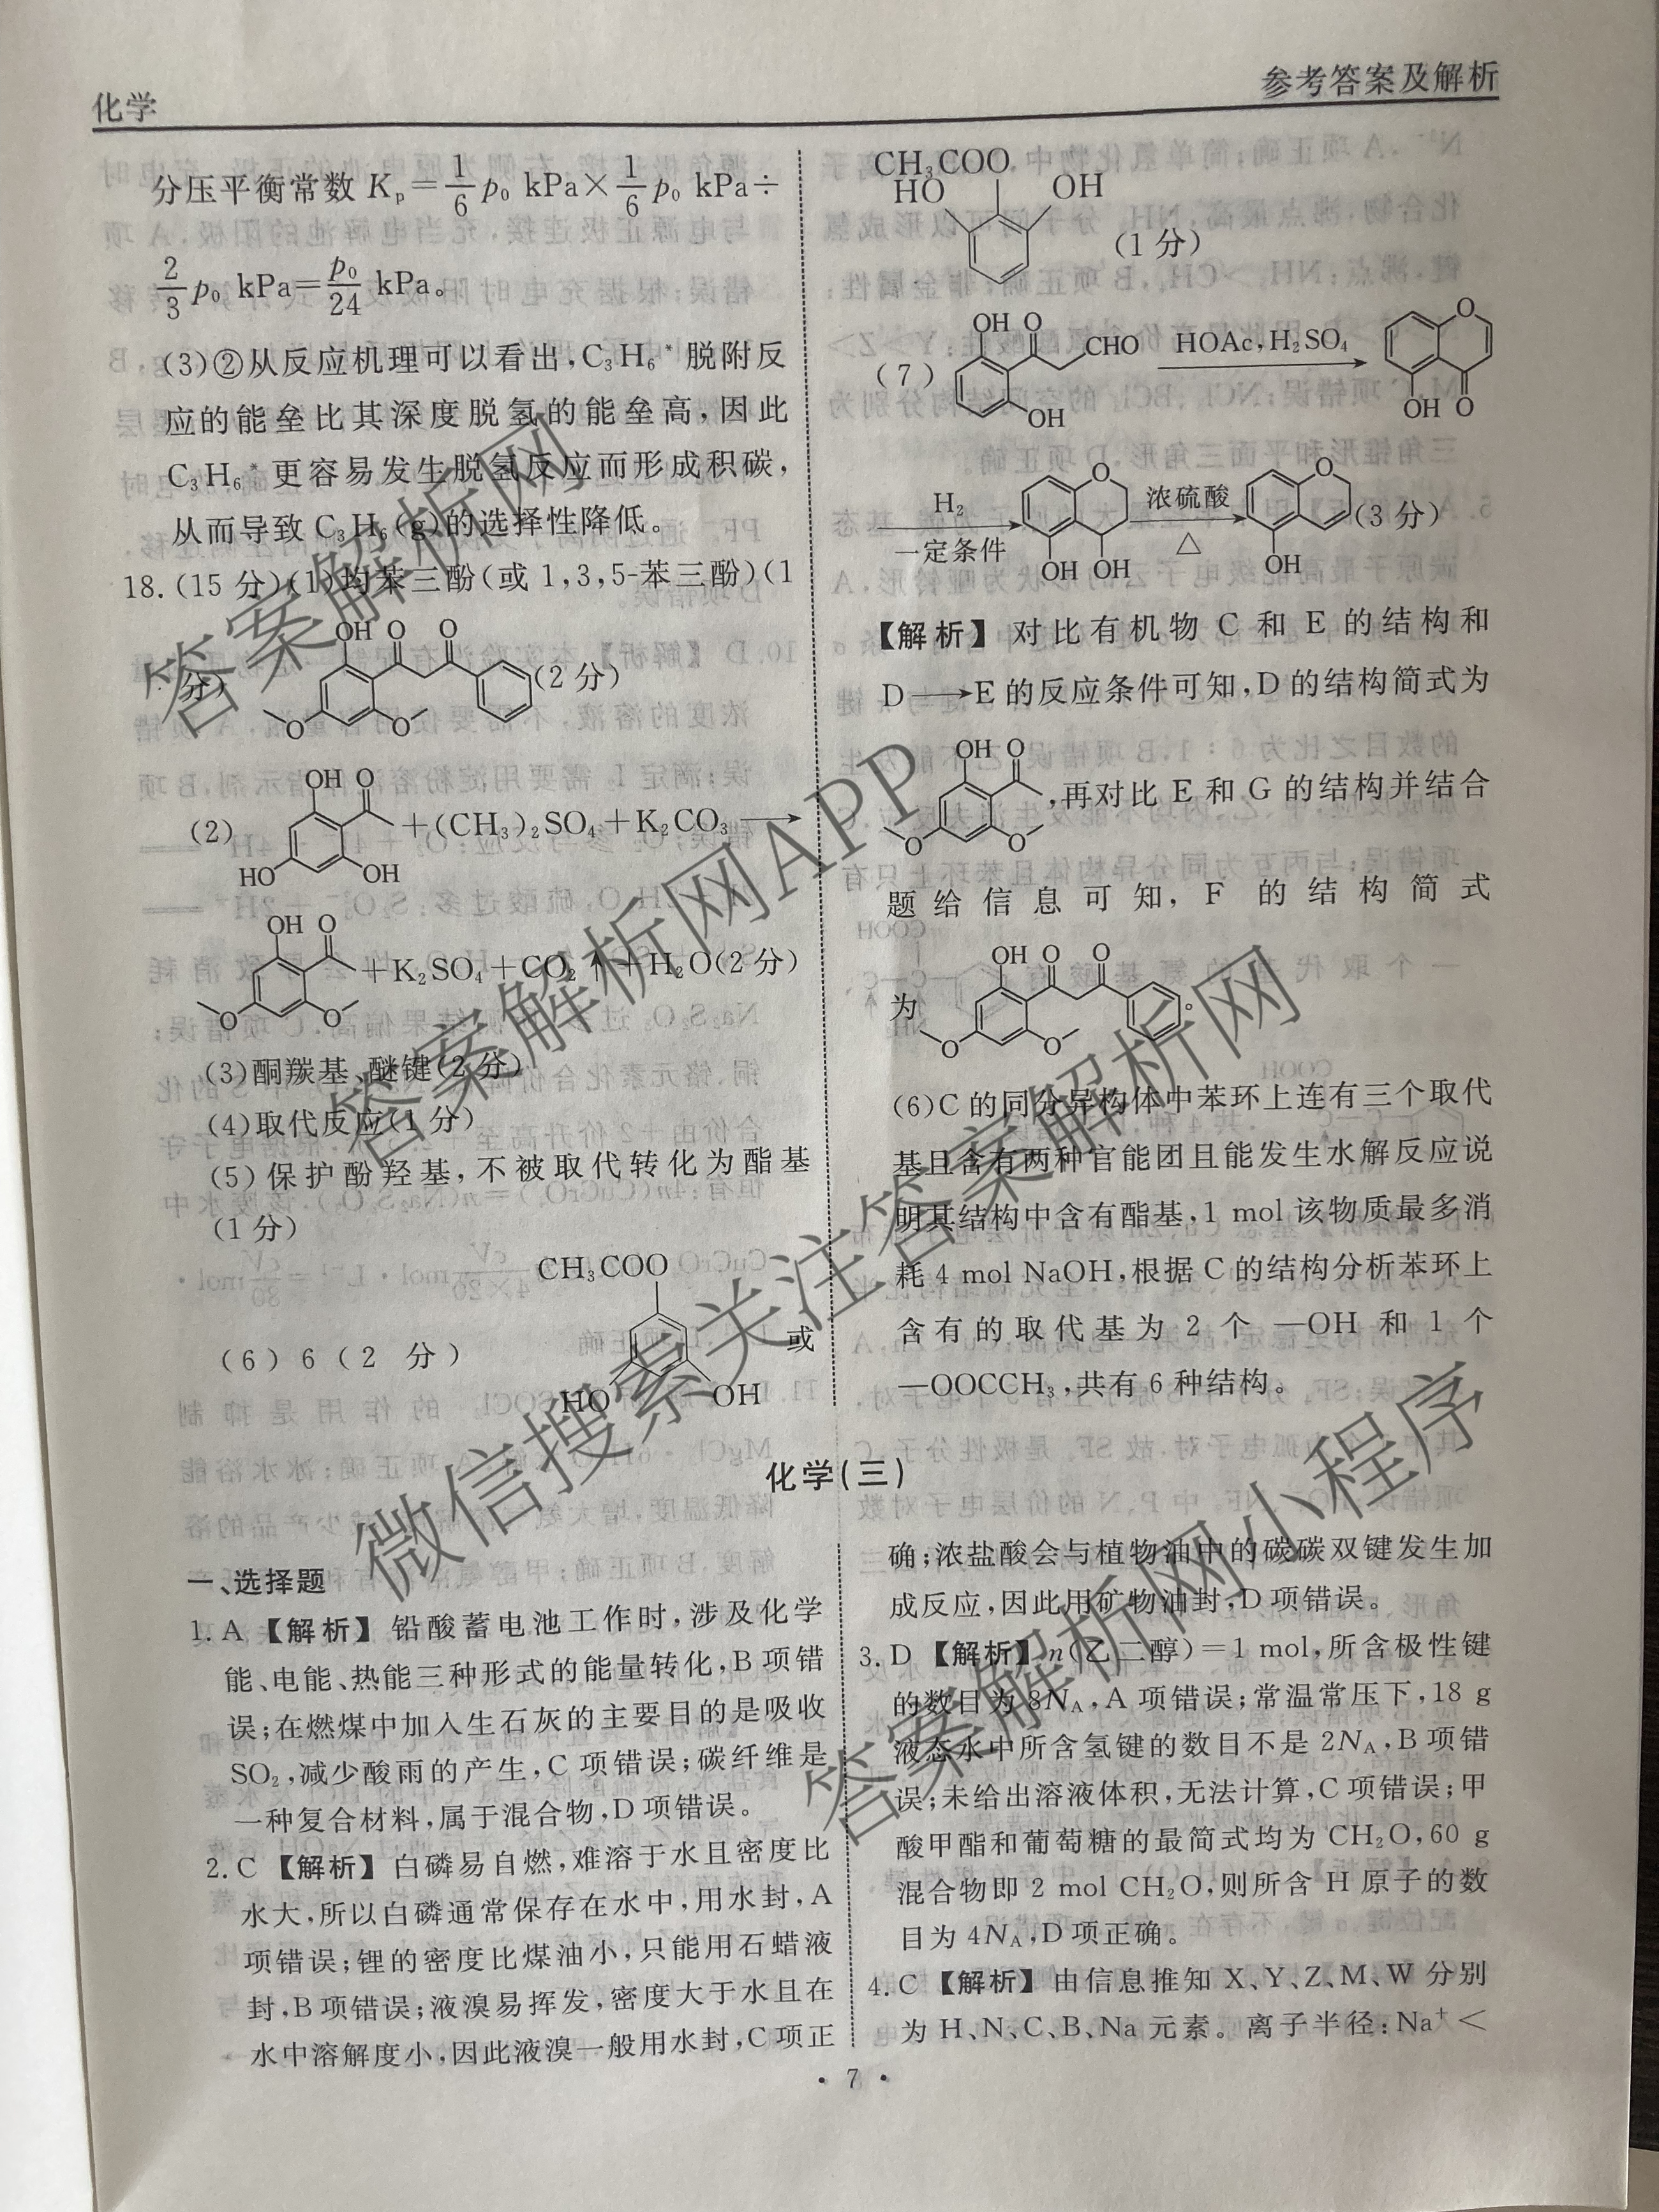 化学
参考答案及解析
分压平衡常数 Kp=1/6 p₀ kPa×1/6 p₀ kPa÷
2/3 p₀ kPa=p₀/24 kPa。
(3)②从反应机理可以看出,C₃H₆* 脱附反
应的能垒比其深度脱氢的能垒高,因此
C₃H₆* 更容易发生脱氢反应而形成积碳,
从而导致 C₃H₆(g)的选择性降低。
18.(15 分)(1)均苯三酚(或 1,3,5-苯三酚)(1
OH O O
分) (2 分)
O O
OH O
(2) +(CH₃)₂SO₄+K₂CO₃⟶
HO OH
OH O
+K₂SO₄+CO₂↑+H₂O(2 分)
O O
(3)酮羰基、醚键(2 分)
(4)取代反应(1 分)
(5)保护酚羟基,不被取代转化为酯基
(1 分)
CH₃COO
(6)6(2 分) 或
HO OH
CH₃COO
HO OH
(1 分)
OH O O
(7) CHO HOAc,H₂SO₄
OH OH O
H₂ O 浓硫酸 O
一定条件 △ (3 分)
OH OH OH
【解析】 对比有机物 C 和 E 的结构和
D⟶E 的反应条件可知,D 的结构简式为
OH O
,再对比 E 和 G 的结构并结合
O O
题给信息可知,F 的结构简式
OH O O
为 。
O O
(6)C 的同分异构体中苯环上连有三个取代
基且含有两种官能团且能发生水解反应说
明其结构中含有酯基,1 mol 该物质最多消
耗 4 mol NaOH,根据 C 的结构分析苯环上
含有的取代基为 2 个 —OH 和 1 个
—OOCCH₃,共有 6 种结构。
化学(三)
一、选择题
1. A 【解析】 铅酸蓄电池工作时,涉及化学
能、电能、热能三种形式的能量转化,B 项错
误;在燃煤中加入生石灰的主要目的是吸收
SO₂,减少酸雨的产生,C 项错误;碳纤维是
一种复合材料,属于混合物,D 项错误。
2. C 【解析】 白磷易自燃,难溶于水且密度比
水大,所以白磷通常保存在水中,用水封,A
项错误;锂的密度比煤油小,只能用石蜡液
封,B 项错误;液溴易挥发,密度大于水且在
水中溶解度小,因此液溴一般用水封,C 项正
确;浓盐酸会与植物油中的碳碳双键发生加
成反应,因此用矿物油封,D 项错误。
3. D 【解析】 n(乙二醇)=1 mol,所含极性键
的数目为 8Nᴀ,A 项错误;常温常压下,18 g
液态水中所含氢键的数目不是 2Nᴀ,B 项错
误;未给出溶液体积,无法计算,C 项错误;甲
酸甲酯和葡萄糖的最简式均为 CH₂O,60 g
混合物即 2 mol CH₂O,则所含 H 原子的数
目为 4Nᴀ,D 项正确。
4. C 【解析】 由信息推知 X、Y、Z、M、W 分别
为 H、N、C、B、Na 元素。离子半径:Na⁺<
· 7 ·
答案解析网
答案解析网APP
微信搜索关注答案解析网
答案解析网小程序